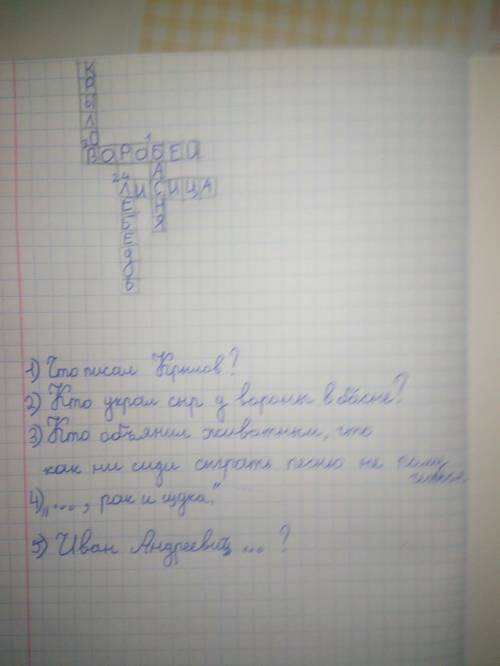 КРЫЛОВ
ВОРОБЕЙ
БАСНЯ
ЛИСИЦА
ЛЕБЕДЬ
1) Что писал Крылов?
2) Кто украл сыр у вороны в басне?
3) Кто объянил животным, что
как ни сиди сыграть песню не полу
чится.
4) „..., рак и щука."
5) Иван Андреевич ... ?